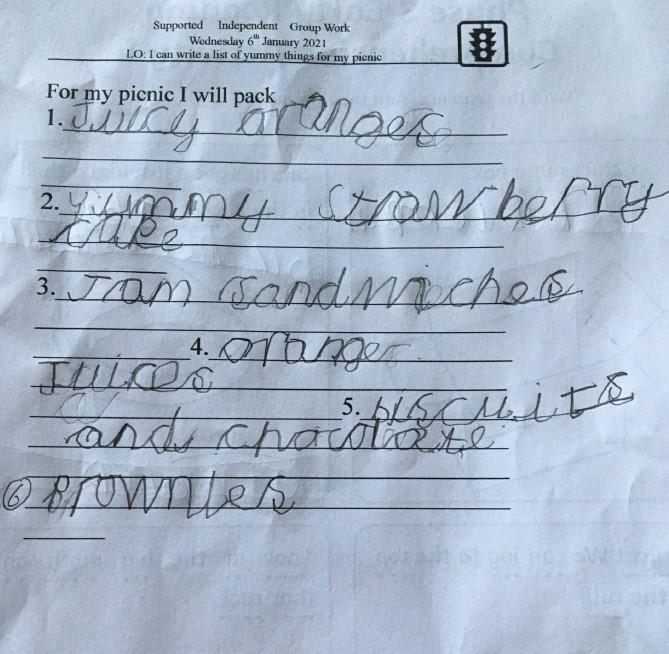 Supported Independent Group Work
Wednesday 6th January 2021
LO: I can write a list of yummy things for my picnic
For my picnic I will pack
1. Juicy oranges
2. Yummy strawberry
cake
3. Jam sandwiches
4. orange
Juices
5. biscuits
and chocolate
6 Brownies